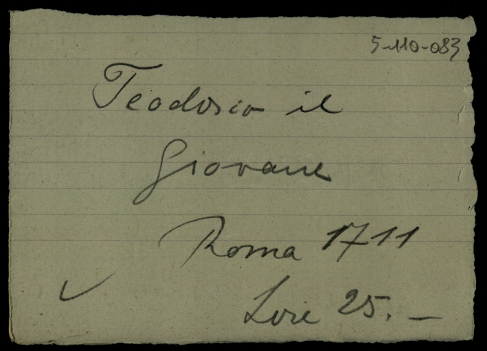 5-110-083
Teodosio il
Giovane
Roma 1711
Lire 25.—